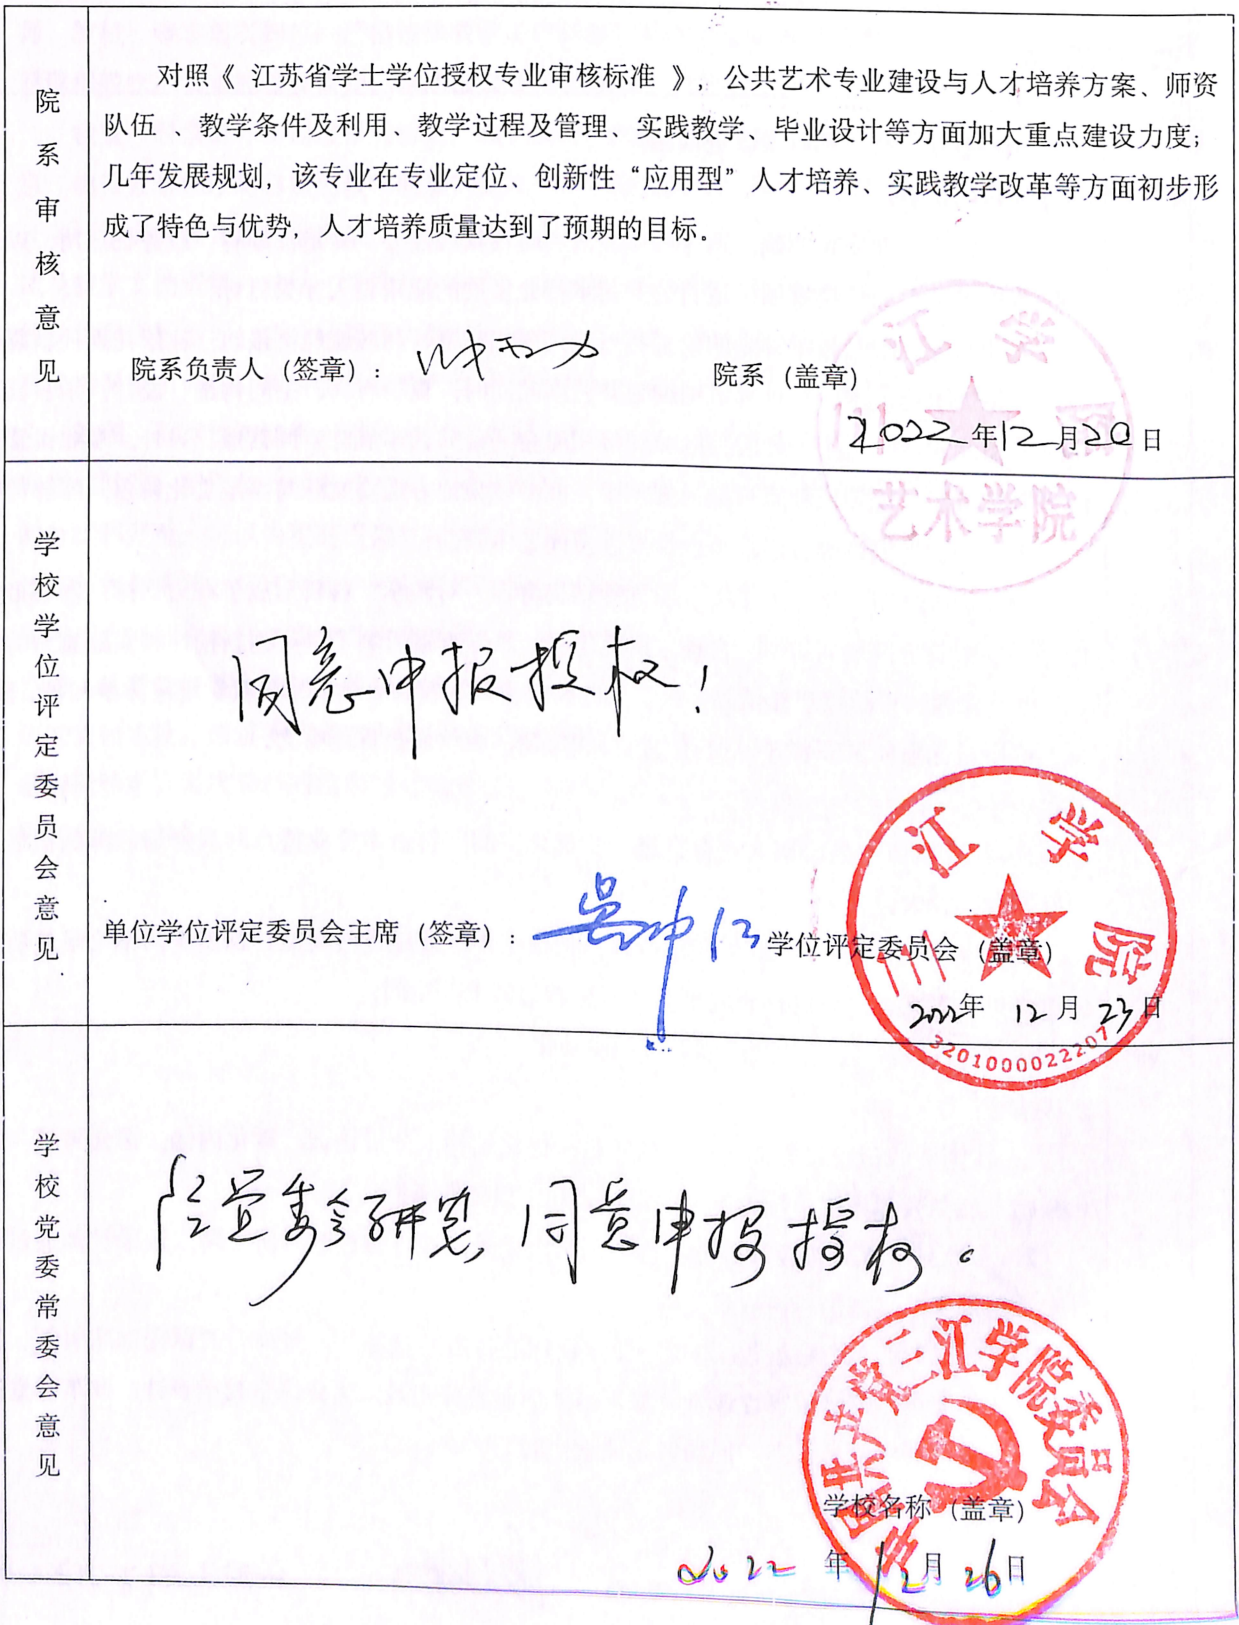 院系审核意见
对照《 江苏省学士学位授权专业审核标准 》，公共艺术专业建设与人才培养方案、师资
队伍 、教学条件及利用、教学过程及管理、实践教学、毕业设计等方面加大重点建设力度；
几年发展规划，该专业在专业定位、创新性“应用型”人才培养、实践教学改革等方面初步形
成了特色与优势，人才培养质量达到了预期的目标。
院系负责人（签章）：
院系（盖章）
三江学院
艺术学院
2022年12月20日
学校学位评定委员会意见
同意申报授权！
单位学位评定委员会主席（签章）：
学位评定委员会（盖章）
三江学院
2022年 12 月 23日
3201000022207
学校党委常委会意见
经党委会研究 同意申报授权。
中国共产党三江学院委员会
学校名称（盖章）
2022 年 12月 26日